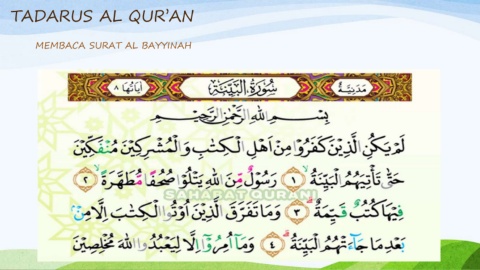 TADARUS AL QUR'AN
MEMBACA SURAT AL BAYYINAH
مَدَنِيَّةٌ سُورَةُ الْبَيِّنَةِ آيَاتُهَا ٨
بِسْمِ اللهِ الرَّحْمٰنِ الرَّحِيْمِ
لَمْ يَكُنِ الَّذِيْنَ كَفَرُوْا مِنْ اَهْلِ الْكِتٰبِ وَالْمُشْرِكِيْنَ مُنْفَكِّيْنَ
حَتّٰى تَأْتِيَهُمُ الْبَيِّنَةُ ١ رَسُوْلٌ مِّنَ اللهِ يَتْلُوْا صُحُفًا مُّطَهَّرَةً ٢
SAHABAT QURANI
فِيْهَا كُتُبٌ قَيِّمَةٌ ٣ وَمَا تَفَرَّقَ الَّذِيْنَ اُوْتُوا الْكِتٰبَ اِلَّا مِنْۢ
بَعْدِ مَا جَاۤءَتْهُمُ الْبَيِّنَةُ ٤ وَمَآ اُمِرُوْٓا اِلَّا لِيَعْبُدُوا اللهَ مُخْلِصِيْنَ